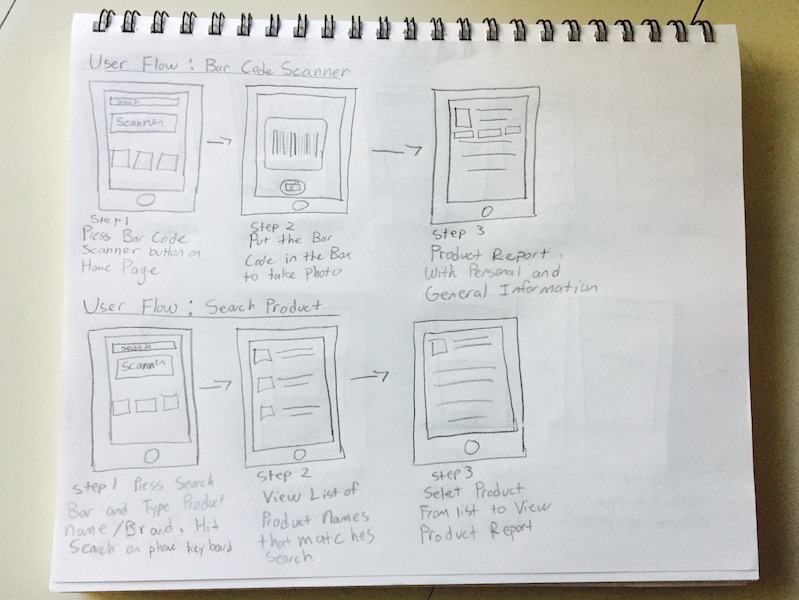 User Flow : Bar Code Scanner
Search
Scanner
Step 1
Press Bar Code
Scanner button on
Home Page
Step 2
Put the Bar
Code in the Box
to take photo
Step 3
Product Report,
With Personal and
General Information
User Flow : Search Product
Search
Scanner
Step 1 Press Search
Bar and Type Product
name/Brand. Hit
Search on phone keyboard
Step 2
View List of
Product Names
that matches
Search
Step 3
Select Product
From list to View
Product Report